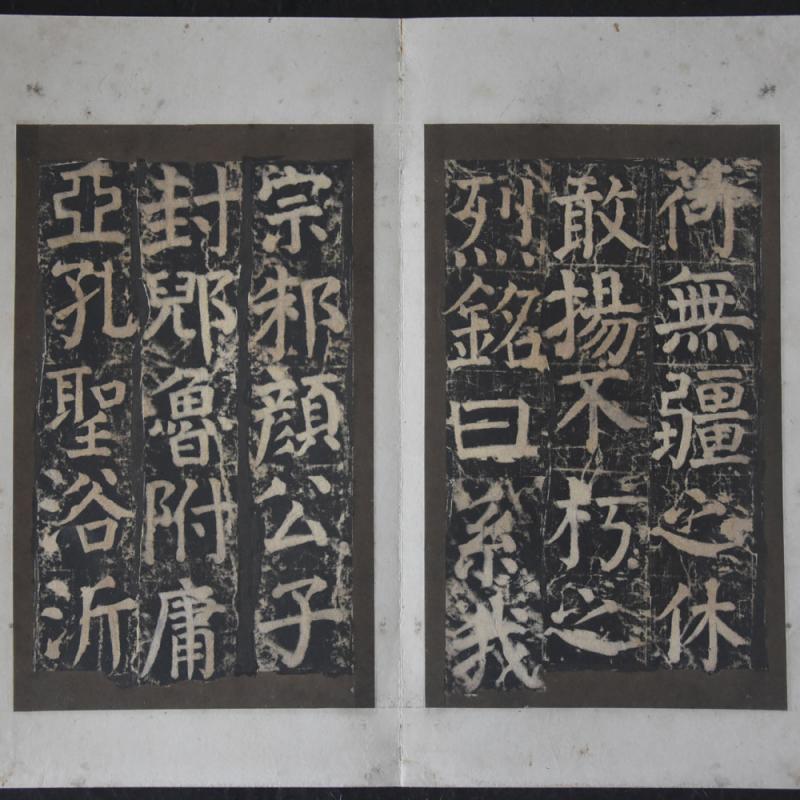 荷無疆之休
敢揚不朽之
烈銘曰系我
宗邾顏公子
封郳魯附庸
亞孔聖浴沂